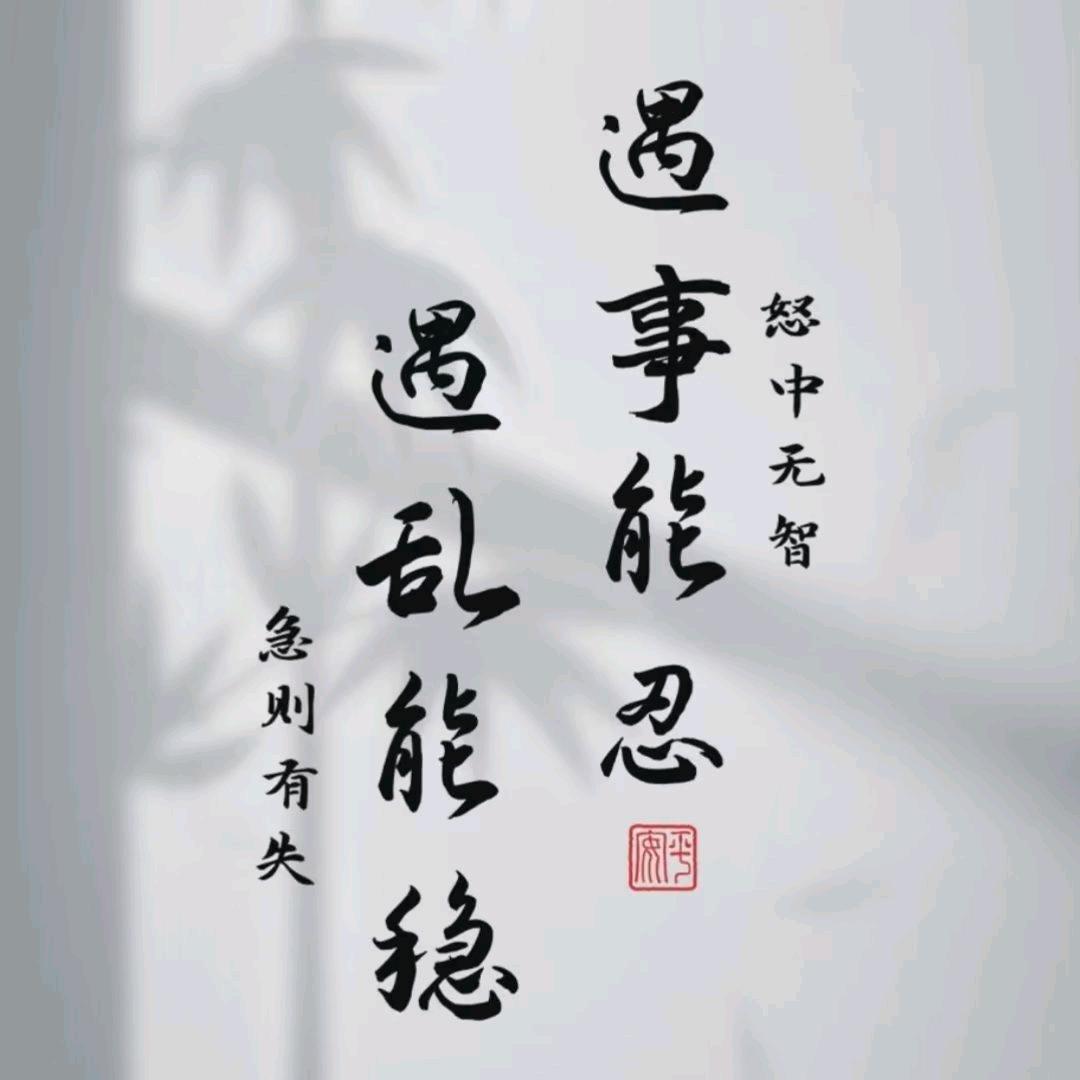 怒中无智
遇事能忍
平安
遇乱能稳
急则有失